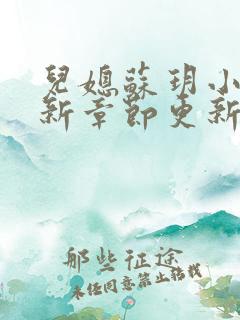 兒媳蘇玥小
新章節更新
那些征途
未经同意禁止转载